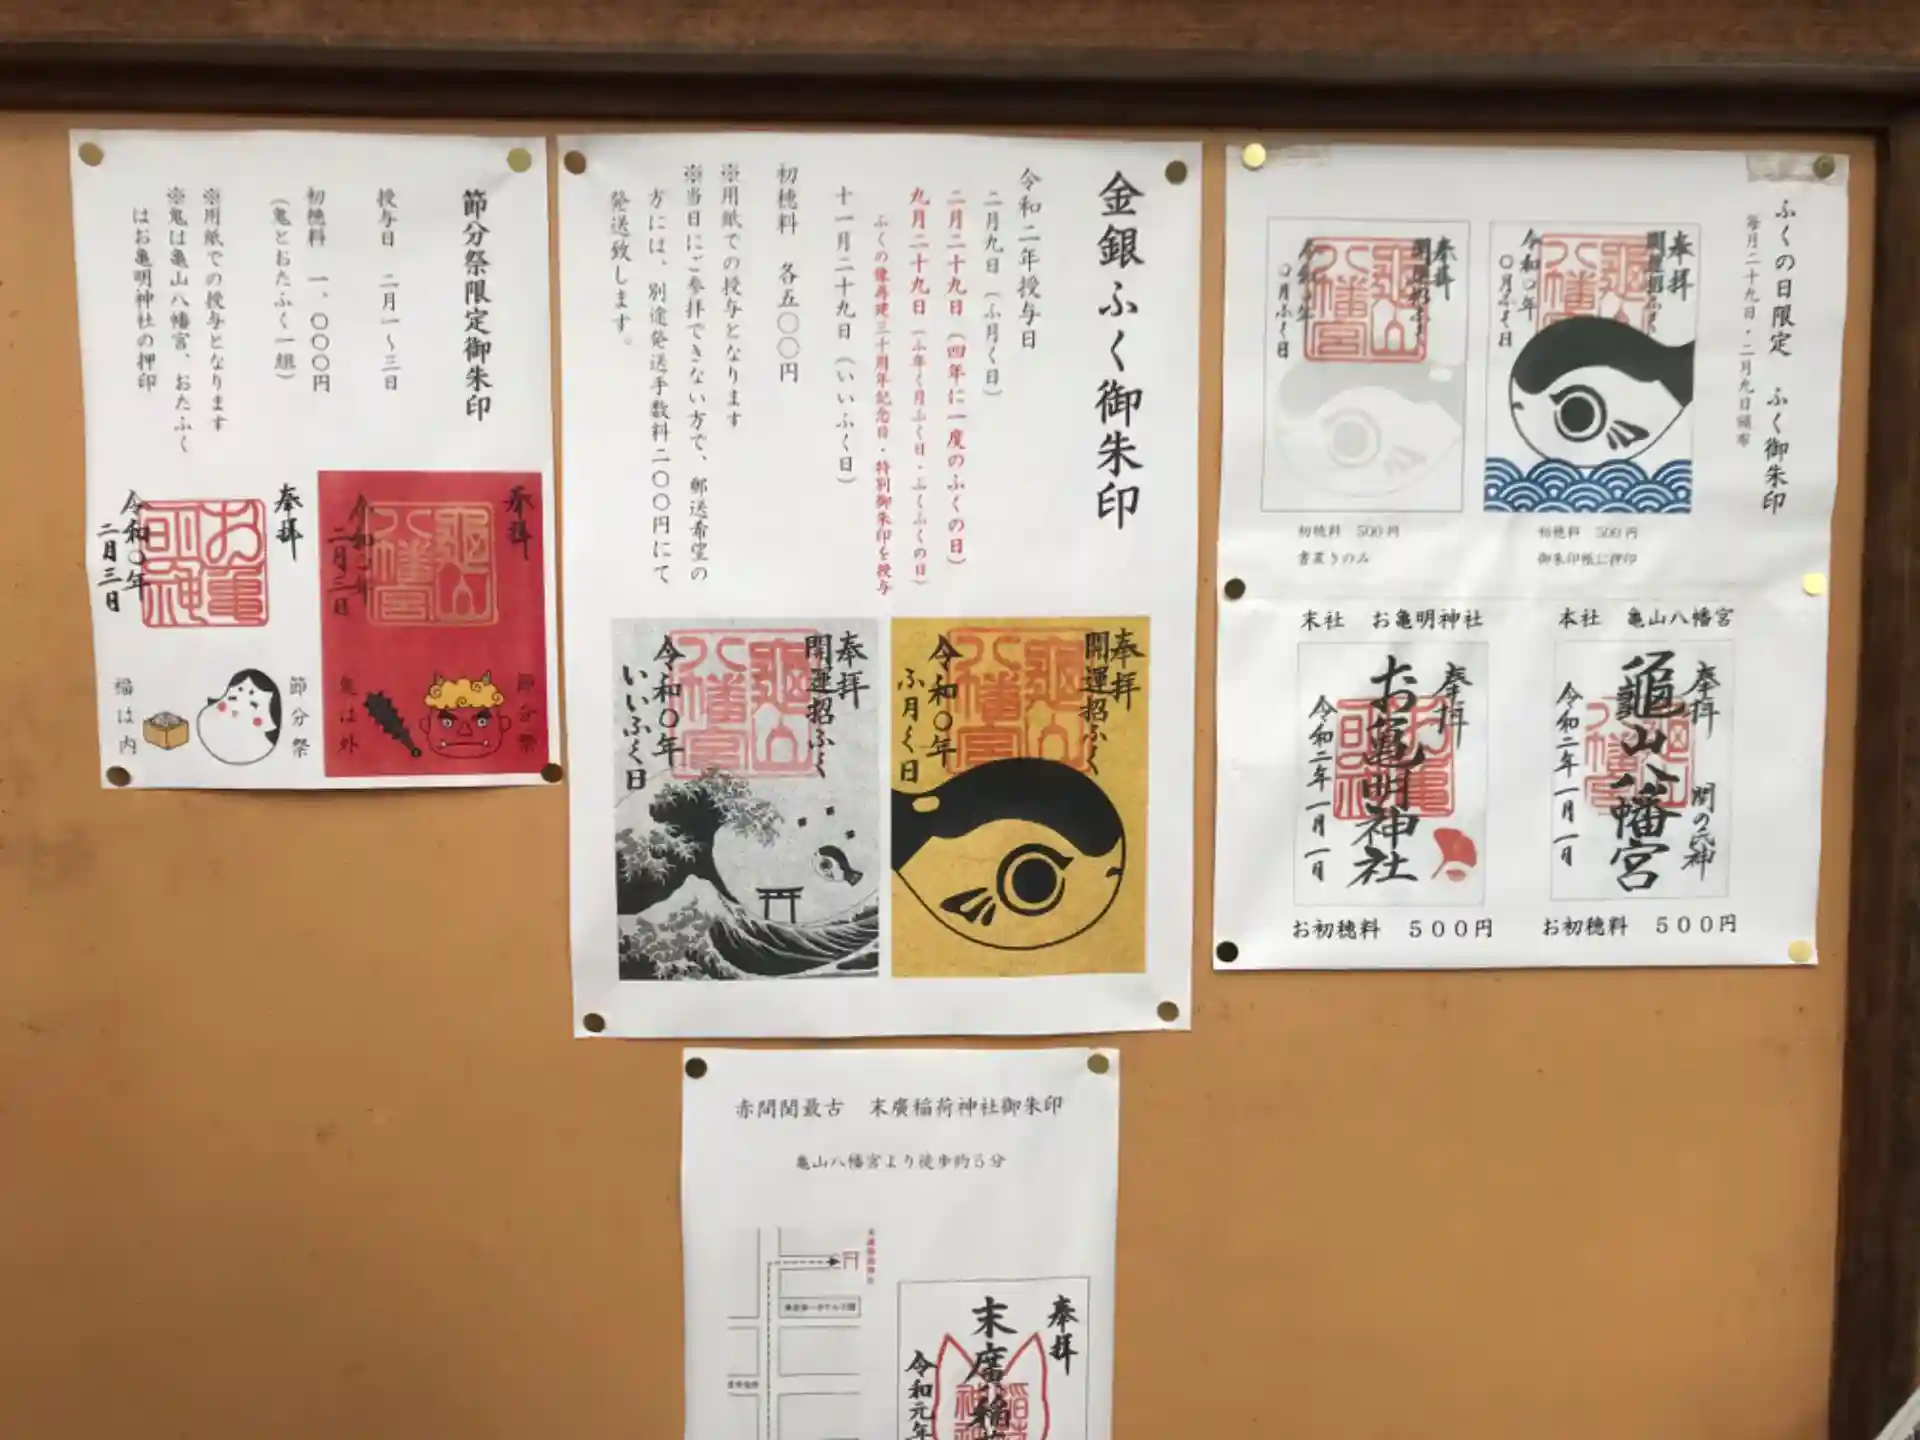 節分祭限定御朱印
授与日 二月一～三日
初穂料 一、〇〇〇円
（鬼とおたふく一組）
※用紙での授与となります
※鬼は亀山八幡宮、おたふく
はお亀明神社の押印
奉拝
亀山八幡宮
二月三日
節分祭
鬼は外
奉拝
お亀明神
令和〇年
二月三日
節分祭
福は内
金銀ふく御朱印
令和二年授与日
二月九日（ふ月く日）
二月二十九日（四年に一度のふくの日）
九月二十九日（ふ年く月ふく日・ふくふくの日）
ふくの像再建三十周年記念日・特別御朱印を授与
十一月二十九日（いいふく日）
初穂料 各五〇〇円
※用紙での授与となります
※当日にご参拝できない方で、郵送希望の
方には、別途発送手数料二〇〇円にて
発送致します。
奉拝
開運招ふく
亀山八幡宮
令和〇年
ふ月く日
奉拝
開運招ふく
亀山八幡宮
令和〇年
いいふく日
ふくの日限定 ふく御朱印
毎月二十九日・二月九日頒布
奉拝
開運招ふく
亀山八幡宮
令和〇年
〇月ふく日
初穂料 500円
御朱印帳に押印
奉拝
開運招ふく
亀山八幡宮
令和〇年
〇月ふく日
初穂料 500円
書置きのみ
本社 亀山八幡宮
奉拝
関の氏神
龜山八幡宮
令和二年一月一日
お初穂料 500円
末社 お亀明神社
奉拝
お亀明神社
令和二年一月一日
お初穂料 500円
赤間関最古 末廣稲荷神社御朱印
亀山八幡宮より徒歩約5分
奉拝
末廣稲
令和元年